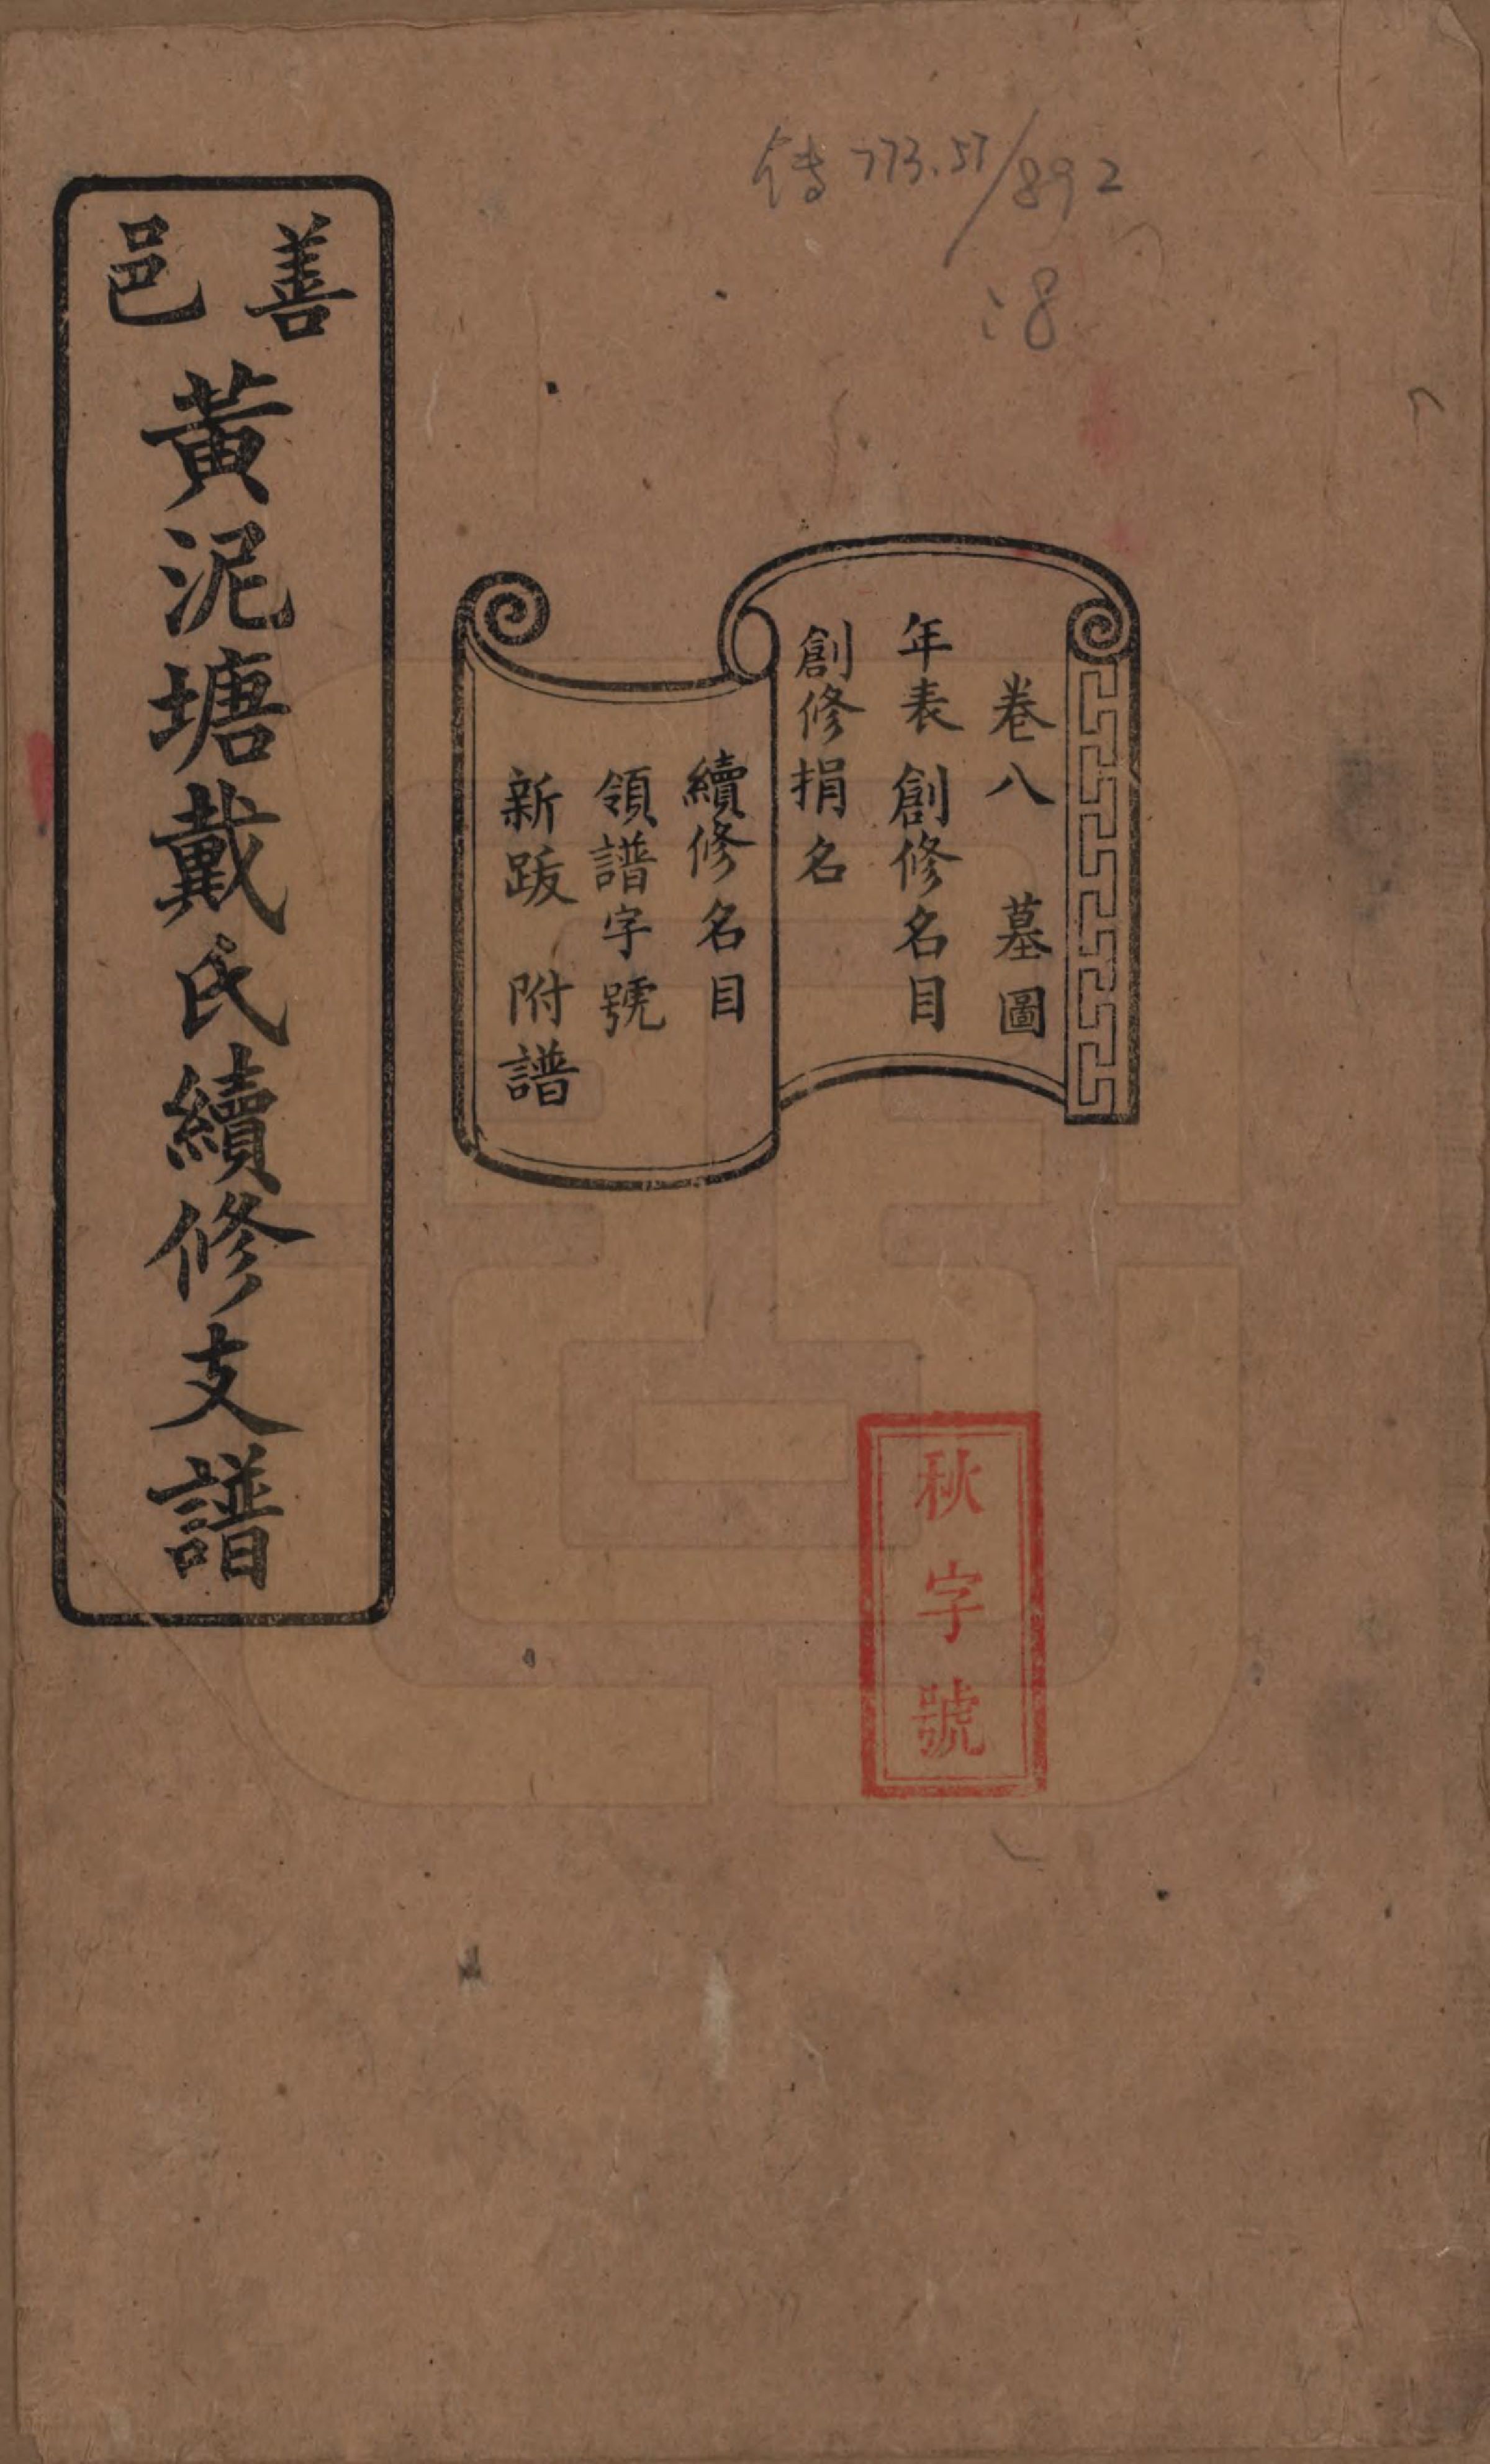 傳 773.57/892
:8
卷八 墓圖
年表 創修名目
創修捐名
續修名目
領譜字號
新跋 附譜
秋字號
善邑
黃泥塘戴氏續修支譜